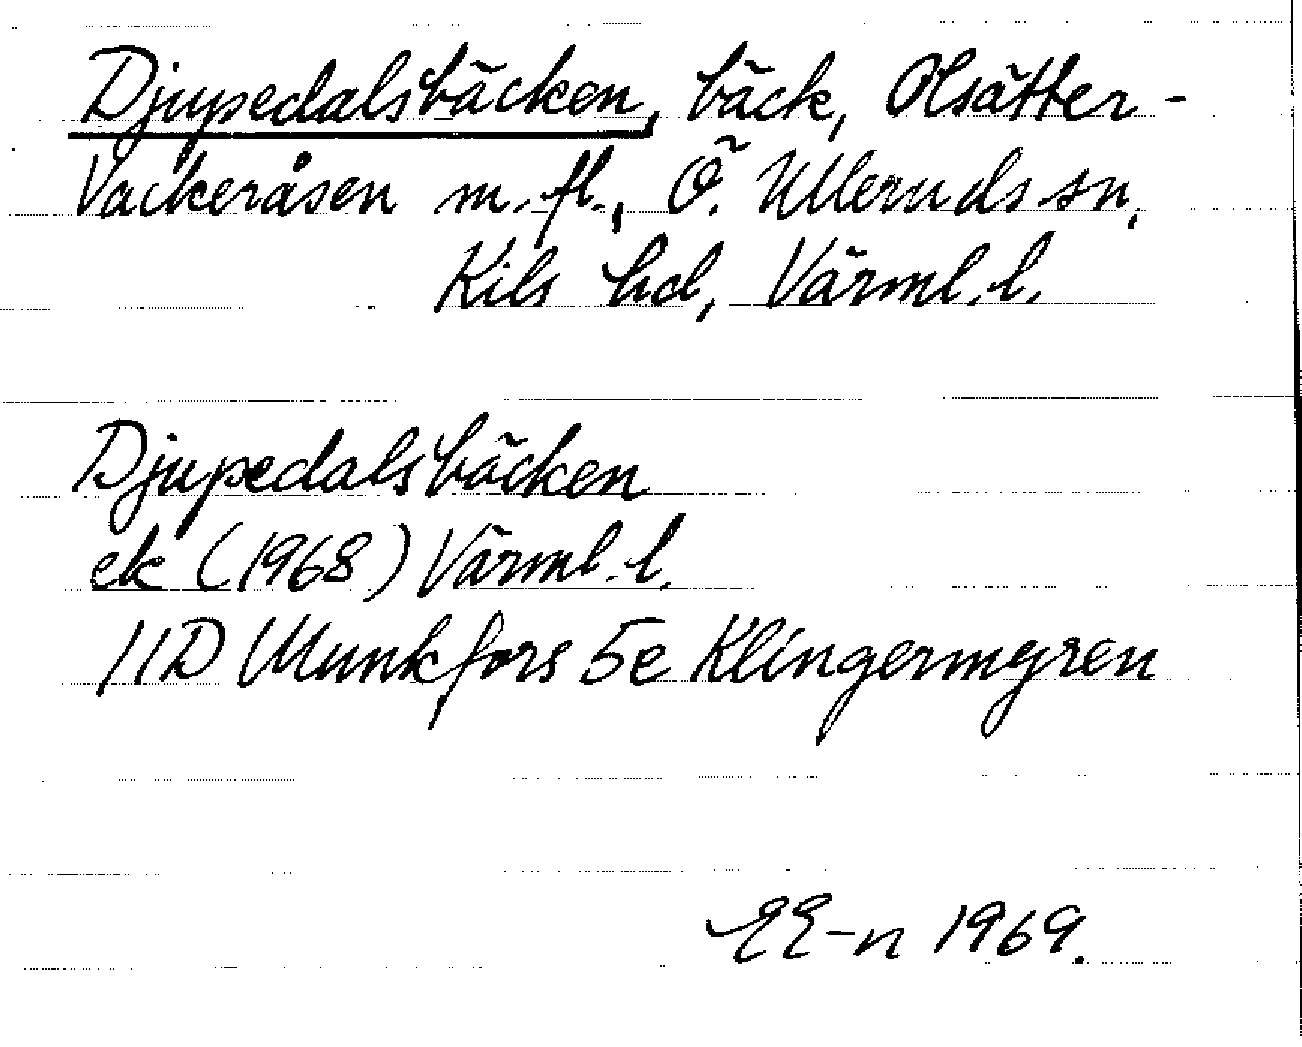 Djupedalsbäcken, bäck, Olsätter-
Vackeråsen m.fl., Ö. Ulleruds sn,
Kils hd, Värml. l.
Djupedalsbäcken
ek (1968) Värml. l.
11D Munkfors 5e Klingermyren
EE-n 1969.